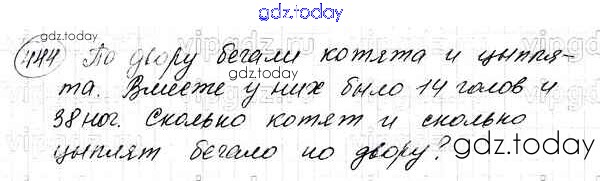 gdz.today
444 По двору бегали котята и цыпля-
gdz.today
та. Вместе у них было 14 голов и
38 ног. Сколько котят и сколько
gdz.today
цыплят бегало по двору?